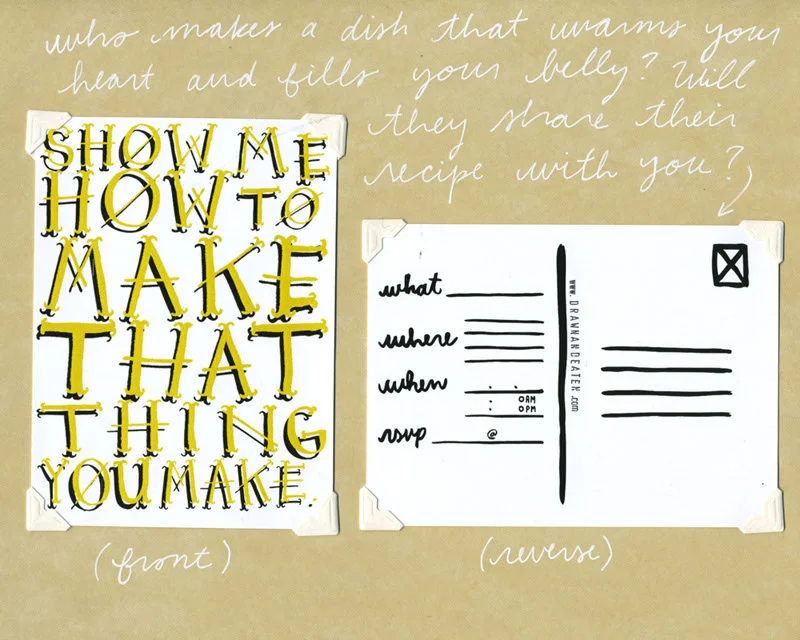 who makes a dish that warms your
heart and fills your belly? Will
they share their
recipe with you?
SHOW ME
HOW TO
MAKE
THAT
THING
YOU MAKE.
(front)
what
where
when : AM
: PM
rsvp @
www.DRAWNANDEATEN.com
(reverse)